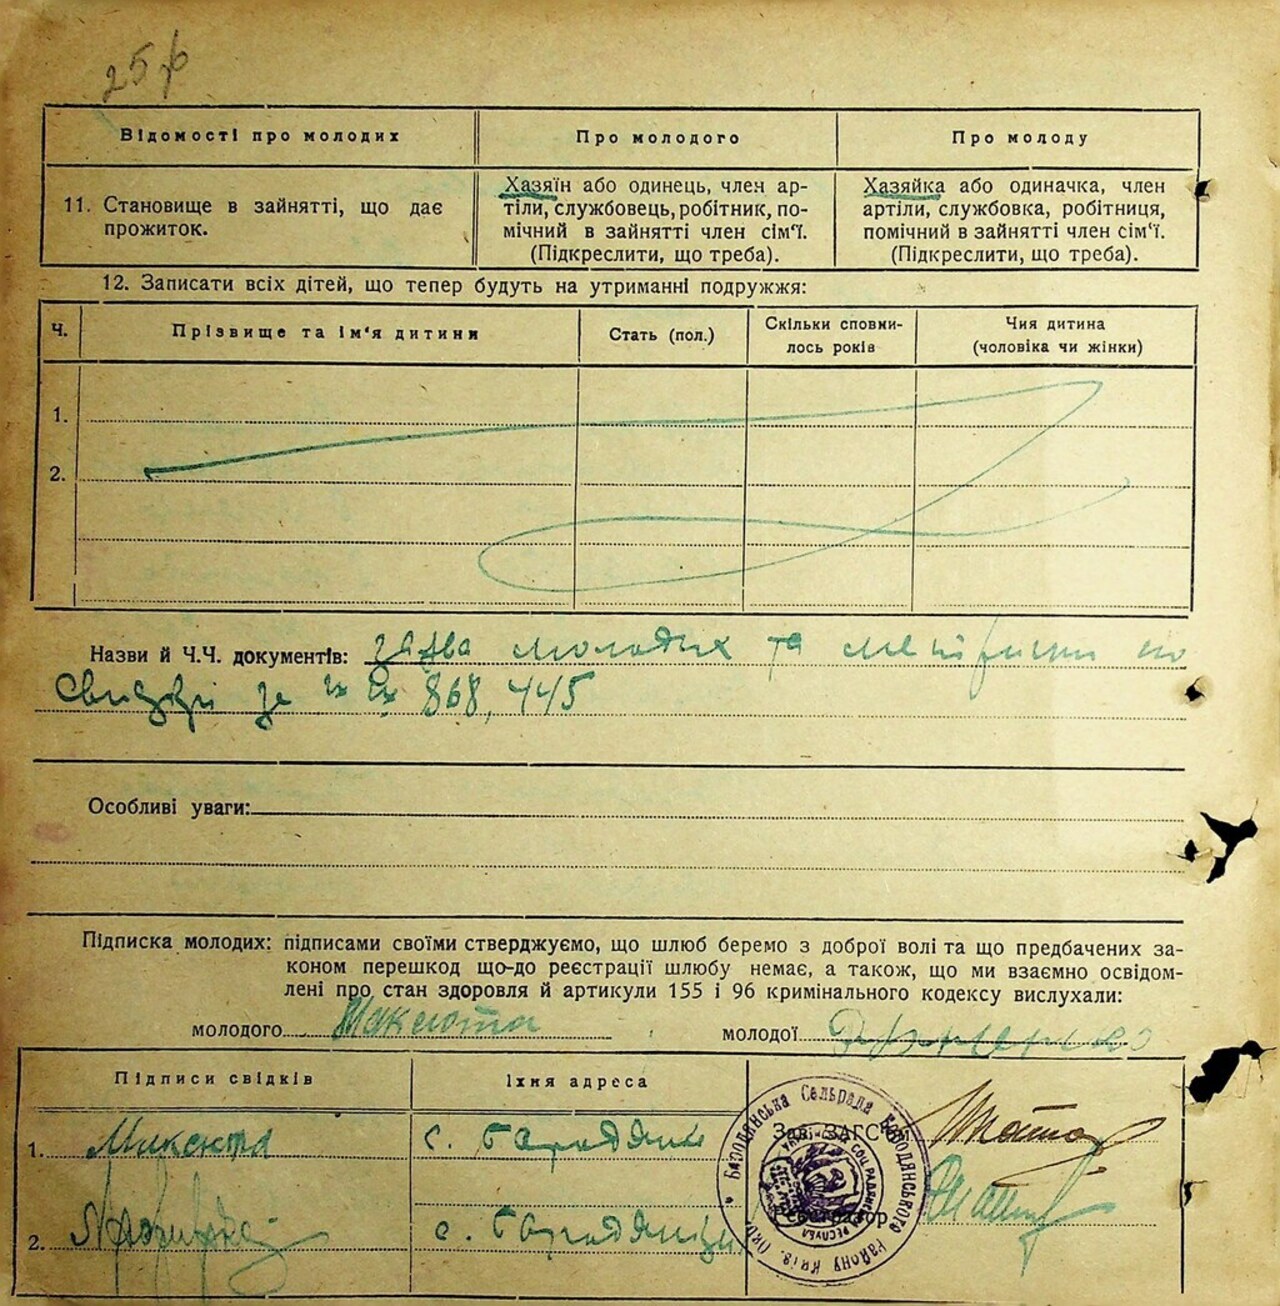 Відомості про молодих
Про молодого
Про молоду
11. Становище в зайнятті, що дає
прожиток.
Хазяїн або одинець, член ар-
тіли, службовець, робітник, по-
мічний в зайнятті член сім'ї.
(Підкреслити, що треба).
Хазяйка або одиначка, член
артіли, службовка, робітниця,
помічний в зайнятті член сім'ї.
(Підкреслити, що треба).
12. Записати всіх дітей, що тепер будуть на утриманні подружжя:
Ч.
Прізвище та ім'я дитини
Стать (пол.)
Скільки сповни-
лось років
Чия дитина
(чоловіка чи жінки)
1.
2.
Назви й Ч.Ч. документів: молодих та
за 868, 445
Особливі уваги:
Підписка молодих: підписами своїми стверджуємо, що шлюб беремо з доброї волі та що предбачених за-
коном перешкод що-до реєстрації шлюбу немає, а також, що ми взаємно освідом-
лені про стан здоров'я й артикули 155 і 96 кримінального кодексу вислухали:
молодого
молодої
Підписи свідків
Їхня адреса
1.
с.
2.
с.
Зав. ЗАГС'ом
Бародянська Сельрада Бародянського району Київ.